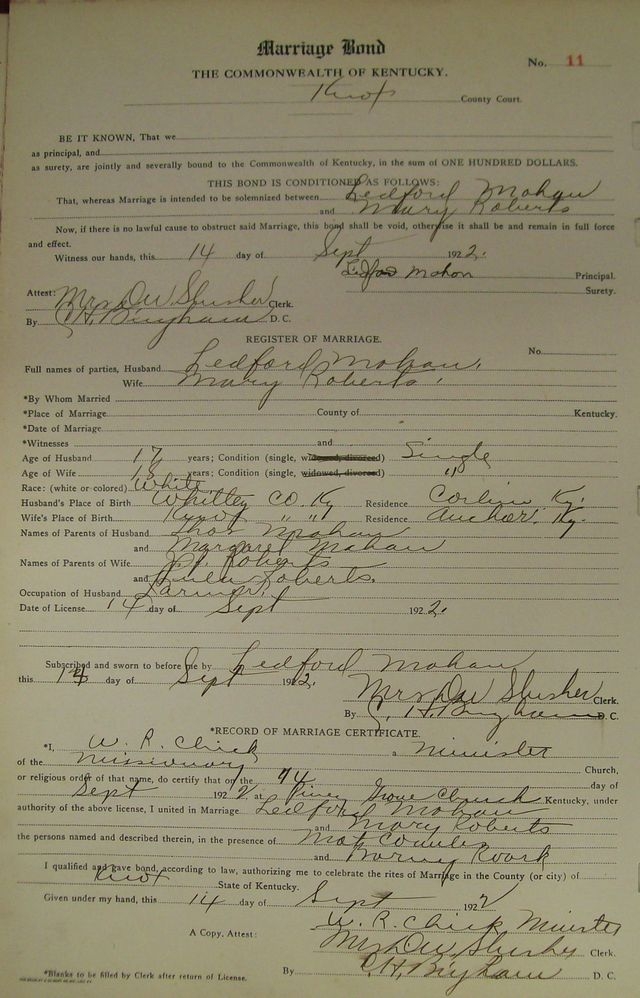 Marriage Bond
No. 11
THE COMMONWEALTH OF KENTUCKY.
Knox County Court.
BE IT KNOWN, That we
as principal, and
as surety, are jointly and severally bound to the Commonwealth of Kentucky, in the sum of ONE HUNDRED DOLLARS.
THIS BOND IS CONDITIONED AS FOLLOWS:
That, whereas Marriage is intended to be solemnized between Ledford Mahan
and Mary Roberts
Now, if there is no lawful cause to obstruct said Marriage, this bond shall be void, otherwise it shall be and remain in full force
and effect.
Witness our hands, this 14 day of Sept 1922.
Mahon Principal.
Surety.
Attest: Mrs DW Slusher Clerk.
By C H. Bingham D. C.
REGISTER OF MARRIAGE.
No.
Full names of parties, Husband Ledford Mahan.
Wife Mary Roberts.
*By Whom Married
*Place of Marriage County of Kentucky.
*Date of Marriage
*Witnesses and
Age of Husband 17 years; Condition (single, widowed, divorced) Single
Age of Wife 18 years; Condition (single, widowed, divorced) "
Race: (white or colored) White
Husband's Place of Birth Whitley Co. Ky Residence Corbin Ky.
Wife's Place of Birth Knox " " Residence Anchor. Ky.
Names of Parents of Husband Thos Mahan
and Margaret Mahan
Names of Parents of Wife Roberts
and Roberts.
Occupation of Husband Farmer.
Date of License 14 day of Sept 1922.
Subscribed and sworn to before me by Ledford Mahan
this 14 day of Sept 1922.
Mrs DW Slusher Clerk.
By C. H. Bingham D. C.
*RECORD OF MARRIAGE CERTIFICATE.
*I, W. R. Chick a Minister
of the Missionary Church,
or religious order of that name, do certify that on the 14 day of
Sept 1922 at Piney Grove Church Kentucky, under
authority of the above license, I united in Marriage Ledford Mahan
and Mary Roberts
the persons named and described therein, in the presence of
and
I qualified and gave bond, according to law, authorizing me to celebrate the rites of Marriage in the County (or city) of
Knox State of Kentucky.
Given under my hand, this 14 day of Sept 1922
W. R. Chick Minister
A Copy. Attest: Mrs DW Slusher Clerk.
By C. H. Bingham D. C.
*Blanks to be filled by Clerk after return of License.